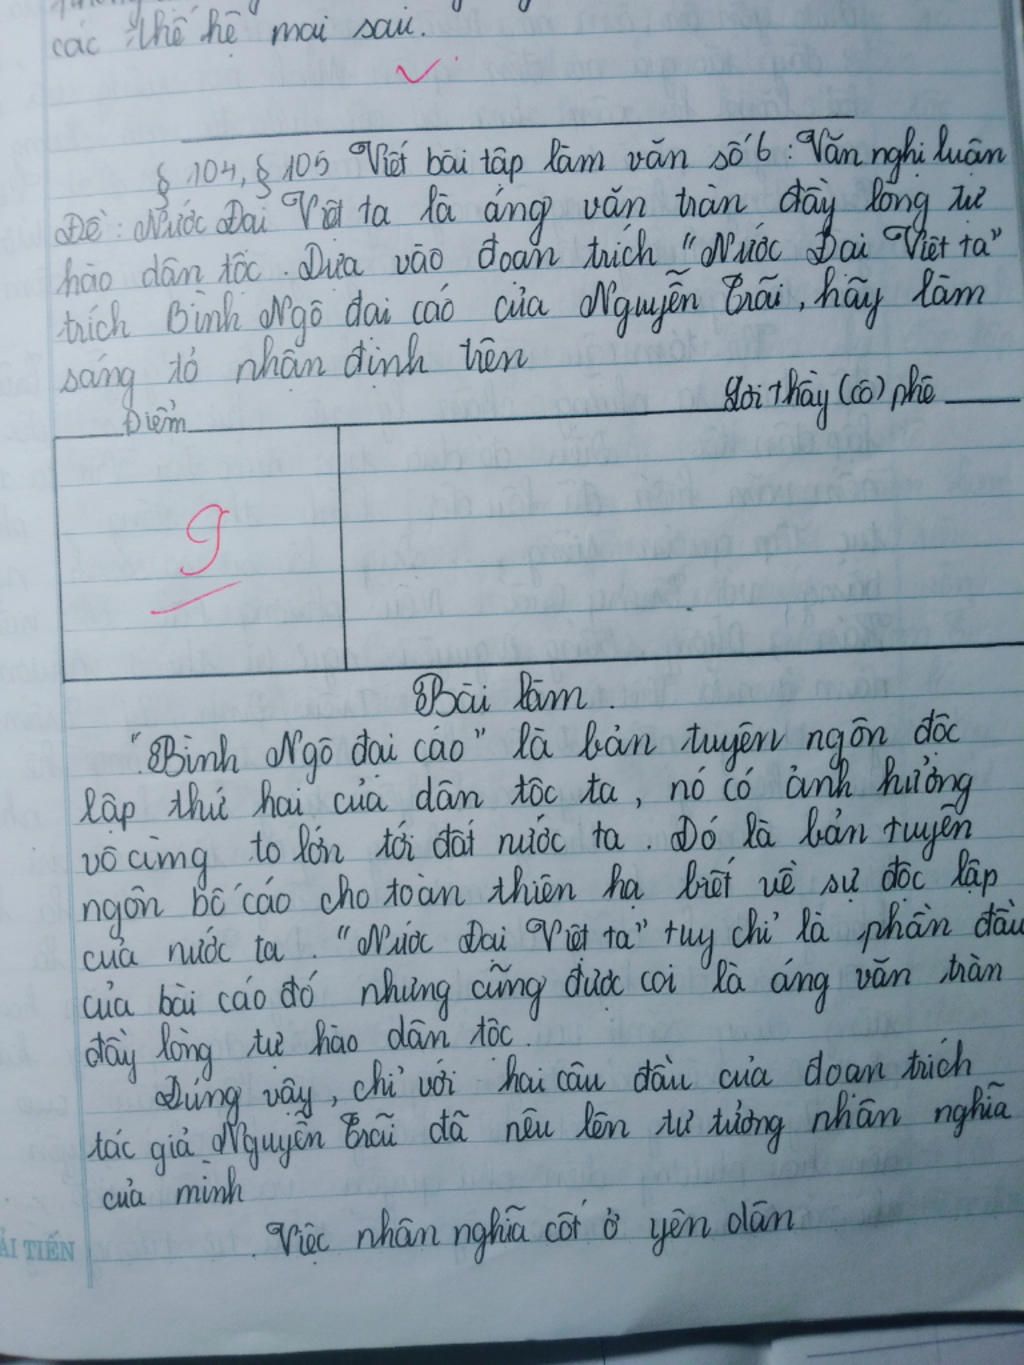 các thế hệ mai sau.
§ 104, § 105 Viết bài tập làm văn số 6: Văn nghị luận
Đề: Nước Đại Việt ta là áng văn tràn đầy lòng tự
hào dân tộc. Dựa vào đoạn trích "Nước Đại Việt ta"
trích Bình Ngô đại cáo của Nguyễn Trãi, hãy làm
sáng tỏ nhận định trên
Điểm
Lời thầy (cô) phê
9
Bài làm.
"Bình Ngô đại cáo" là bản tuyên ngôn độc
lập thứ hai của dân tộc ta, nó có ảnh hưởng
vô cùng to lớn tới đất nước ta. Đó là bản tuyên
ngôn bố cáo cho toàn thiên hạ biết về sự độc lập
của nước ta. "Nước Đại Việt ta" tuy chỉ là phần đầu
của bài cáo đó nhưng cũng được coi là áng văn tràn
đầy lòng tự hào dân tộc.
Đúng vậy, chỉ với hai câu đầu của đoạn trích
tác giả Nguyễn Trãi đã nêu lên tư tưởng nhân nghĩa
của mình
Việc nhân nghĩa cốt ở yên dân
ẢI TIẾN